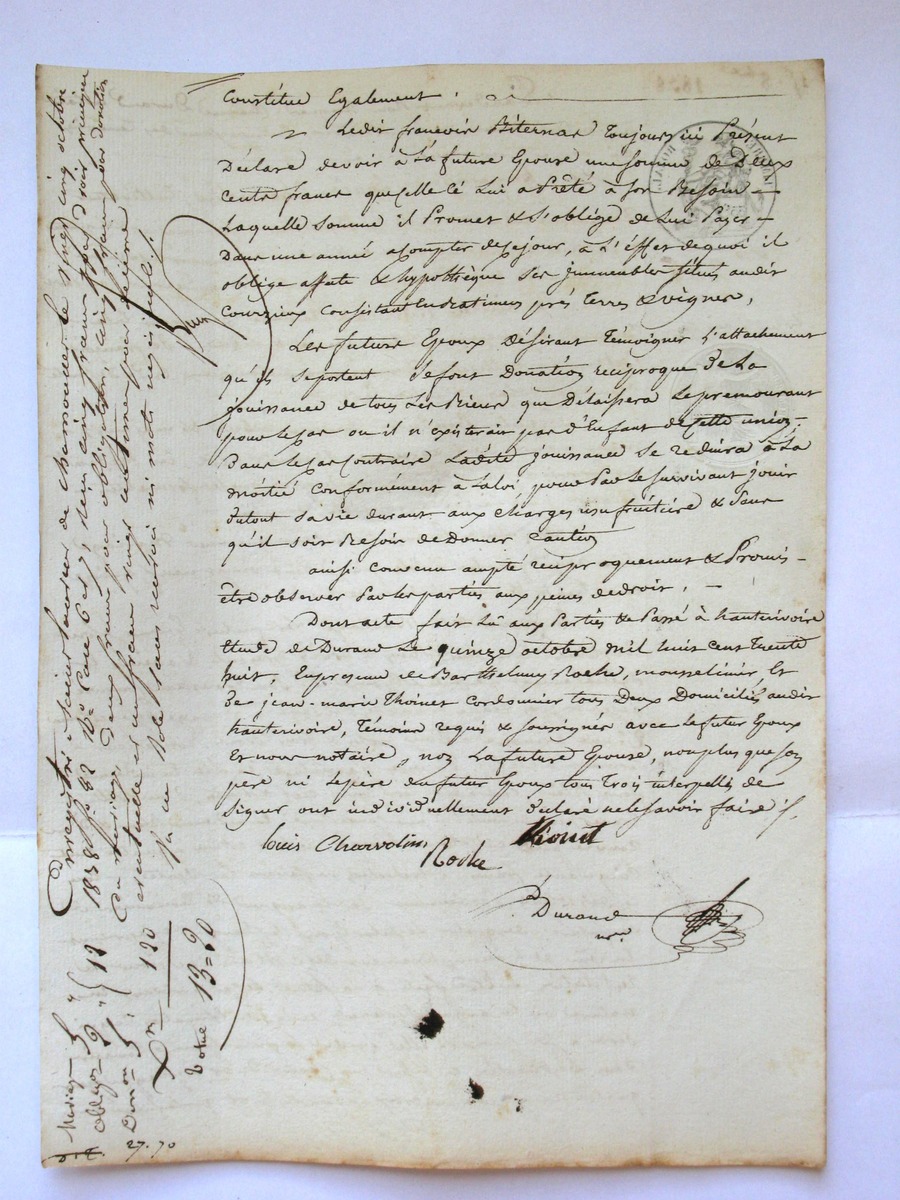 Constitue Egalement .
Ledit francois Biternas Toujours ici Présent
Déclare devoir à La future Epouse une somme de Deux
cents francs que Celle ci Lui a Prêté à son Besoin –
Laquelle somme il Promet & s'oblige de Lui Payer –
Dans une année a compter de ce jour, à L'éffet de quoi il
oblige affecte & hypothèque ses immeubles situés audit
Courzieux Consistant En Batimens prés Terres & vignes,
Les futurs Epoux Désirant Témoigner L'attachement
qu'ils se portent se font Donation réciproque De La
jouissance de tous Les Biens que Délaissera Le premourant
pour Le Cas ou il n'existerait pas d'Enfant de Cette union,
Dans Le Cas Contraire Ladite jouissance se reduira à La
moitié Conformément à La loi, pour Par Le survivant jouir
du tout sa vie durant aux Charges usufruitière & sans
qu'il soit Besoin de Donner Caution
ainsi convenu accepté réciproquement & Promis –
être observer Par Les parties aux peines de droit, –
Dont acte fait Lu aux Parties & Passé à hauterivoire
Etude de Durand Le quinze octobre mil huit Cent Trente
huit, En présence de Barthelemy Roche, mousselinier, Et
De jean-marie Thoinet Cordonnier tous Deux Domiciliés audit
hauterivoire, Témoins requis & soussignés avec Le futur Epoux
Et nous notaire, non La future Epouse, non plus que son
père ni Le père du futur Epoux tous Trois interpellés de
signer ont individuellement déclaré ne le savoir faire ./.
Louis Charvolin
Roche
Thoinet
Durand
nre
Enregistré à Saint Laurent de chamousset le vingt cinq octobre
1838 fo 82 Vo Case 6 et 7, reçu cinq francs pour
du mariage, deux francs pour obligation, cinq francs pour donation
éventuelle et un franc vingt centimes pour dixième
sans renvoi ni mots rayés nuls ./.
Mariage 5 "
Oblig on 2 "
Don on 5 "
12
Xme 1 20
Total 13=20
27.70